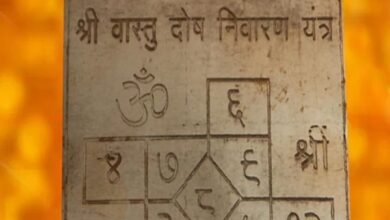 श्री वास्तु दोष निवारण यंत्र
ॐ ६ श्रीं
४ ७ ९
८